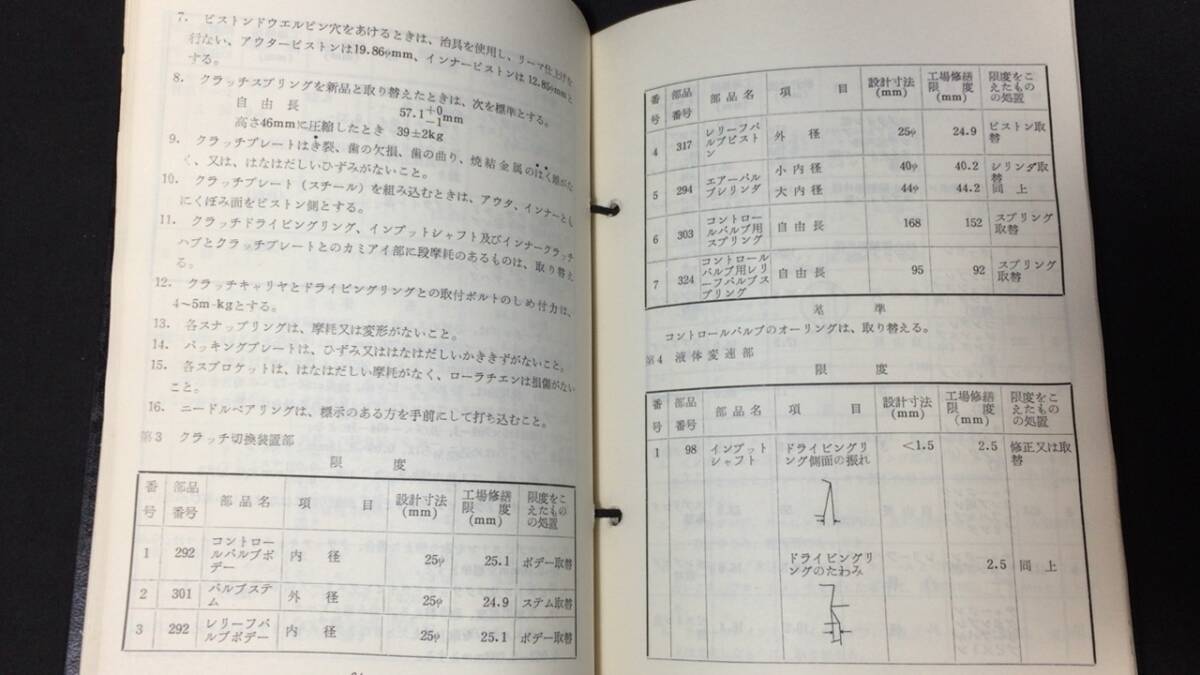 7. ピストンドウエルピン穴をあけるときは、治具を使用し、リーマ仕上げを
行ない、アウターピストンは19.86φmm、インナーピストンは12.85φmmと
する。
8. クラッチスプリングを新品と取り替えたときは、次を標準とする。
自由長 57.1+0−1mm
高さ46mmに圧縮したとき 39±2kg
9. クラッチプレートはき裂、歯の欠損、歯の曲り、焼結金属のはく離がな
く、又は、はなはだしいひずみがないこと。
10. クラッチプレート(スチール)を組み込むときは、アウタ、インナーとも
にくぼみ面をピストン側とする。
11. クラッチドライビングリング、インプットシャフト及びインナークラッチ
ハブとクラッチプレートとのカミアイ部に段摩耗のあるものは、取り替え
る。
12. クラッチキャリヤとドライビングリングとの取付ボルトのしめ付力は、
4~5m-kgとする。
13. 各スナップリングは、摩耗又は変形がないこと。
14. バッキングプレートは、ひずみ又ははなはだしいかききずがないこと。
15. 各スプロケットは、はなはだしい摩耗がなく、ローラチエンは損傷がない
こと。
16. ニードルベアリングは、標示のある方を手前にして打ち込むこと。
第3 クラッチ切換装置部
限度
番号 部品番号 部品名 項目 設計寸法(mm) 工場修繕限度(mm) 限度をこえたものの処置
1 292 コントロールバルブボデー 内径 25φ 25.1 ボデー取替
2 301 バルブステム 外径 25φ 24.9 ステム取替
3 292 レリーフバルブボデー 内径 25φ 25.1 ボデー取替
番号 部品番号 部品名 項目 設計寸法(mm) 工場修繕限度(mm) 限度をこえたものの処置
4 317 レリーフバルブピストン 外径 25φ 24.9 ピストン取替
5 294 エアーバルブレリンダ 小内径 40φ 40.2 レリンダ取替
大内径 44φ 44.2 同上
6 303 コントロールバルブ用スプリング 自由長 168 152 スプリング取替
7 324 コントロールバルブ用レリーフバルブスプリング 自由長 95 92 スプリング取替
基準
コントロールバルブのオーリングは、取り替える。
第4 液体変速部
限度
番号 部品番号 部品名 項目 設計寸法(mm) 工場修繕限度(mm) 限度をこえたものの処置
1 98 インプットシャフト ドライビングリング側面の振れ <1.5 2.5 修正又は取替
ドライビングリングのたわみ 2.5 同上